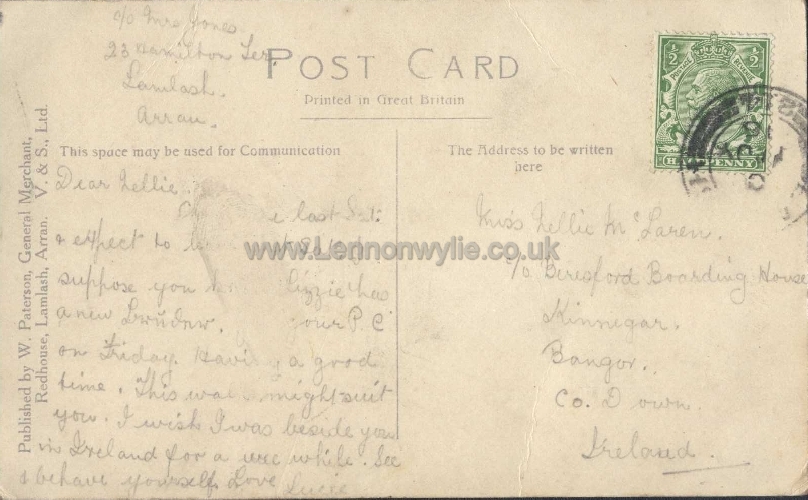 c/o Mrs Jones.
23 Hamilton Ter.
Lamlash.
Arran.
POST CARD
Printed in Great Britain
This space may be used for Communication
The Address to be written
here
Published by W. Paterson, General Merchant,
Redhouse, Lamlash, Arran. V. & S., Ltd.
½ ½
POSTAGE REVENUE
HALFPENNY
Dear Nellie.
last Sat.
& expect to
suppose you Lizzie has
a new your P.C
on Friday. Having a good
time. This might suit
you. I wish I was beside you
in Ireland for a wee while. See
& behave yourself. Love
Lucie
Miss Nellie McLaren.
c/o Beresford Boarding House
Kinnegar.
Bangor.
Co. Down.
Ireland.
www.Lennonwylie.co.uk